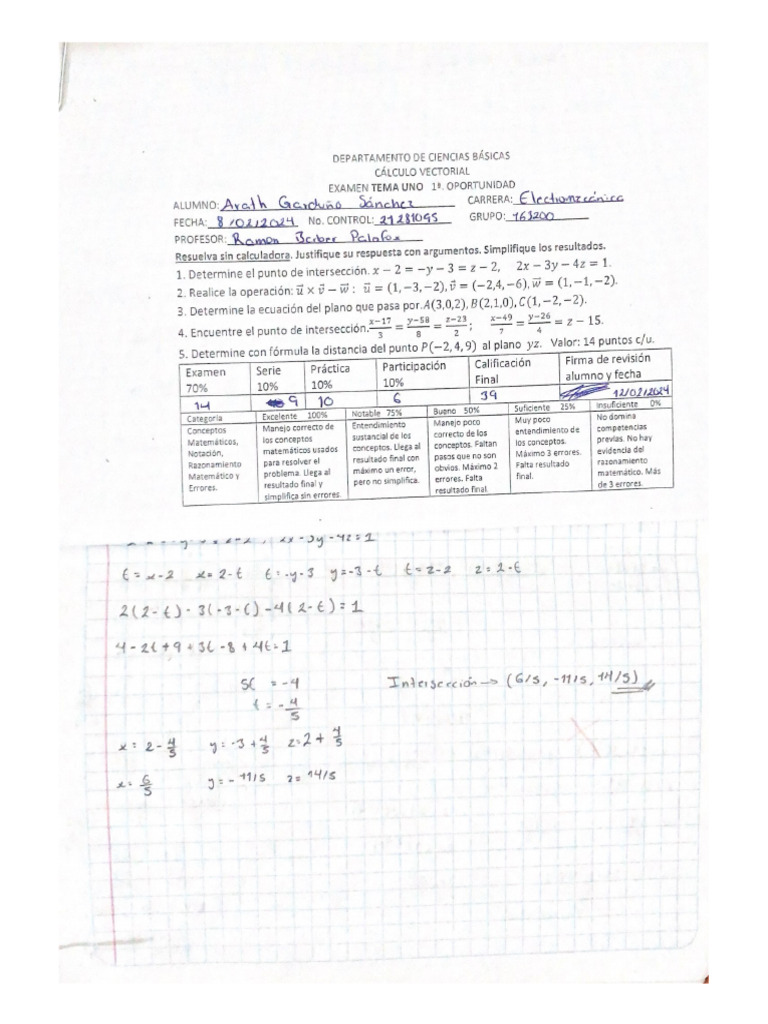 DEPARTAMENTO DE CIENCIAS BÁSICAS
CÁLCULO VECTORIAL
EXAMEN TEMA UNO 1ª. OPORTUNIDAD
ALUMNO: Arath Garduño Sánchez CARRERA: Electromecánica
FECHA: 8/02/2024 No. CONTROL: 21281095 GRUPO: 163200
PROFESOR: Ramon Berber Palafox
Resuelva sin calculadora. Justifique su respuesta con argumentos. Simplifique los resultados.
1. Determine el punto de intersección. x − 2 = −y − 3 = z − 2, 2x − 3y − 4z = 1.
2. Realice la operación: u⃗ × v⃗ − w⃗ : u⃗ = (1, −3, −2), v⃗ = (−2,4, −6), w⃗ = (1, −1, −2).
3. Determine la ecuación del plano que pasa por A(3,0,2), B(2,1,0), C(1, −2, −2).
4. Encuentre el punto de intersección. (x−17)/3 = (y−58)/8 = (z−23)/2 ; (x−49)/7 = (y−26)/4 = z − 15.
5. Determine con fórmula la distancia del punto P(−2,4,9) al plano yz. Valor: 14 puntos c/u.
Examen 70% Serie 10% Práctica 10% Participación 10% Calificación Final Firma de revisión alumno y fecha
14 9 10 6 39 12/02/2024
Categoria Excelente 100% Notable 75% Bueno 50% Suficiente 25% Insuficiente 0%
Conceptos Matemáticos, Notación, Razonamiento Matemático y Errores.
Manejo correcto de los conceptos matemáticos usados para resolver el problema. Llega al resultado final y simplifica sin errores.
Entendimiento sustancial de los conceptos. Llega al resultado final con máximo un error, pero no simplifica.
Manejo poco correcto de los conceptos. Faltan pasos que no son obvios. Máximo 2 errores. Falta resultado final.
Muy poco entendimiento de los conceptos. Máximo 3 errores. Falta resultado final.
No domina competencias previas. No hay evidencia del razonamiento matemático. Más de 3 errores.
2x-3y-4z=1
t=x-2 x=2-t t=-y-3 y=-3-t t=z-2 z=2-t
2(2-t)-3(-3-t)-4(2-t)=1
4-2t+9+3t-8+4t=1
5t = -4
t = -4/5
Intersección → (6/5, -11/5, 14/5)
x= 2-4/5 y=-3+4/5 z=2+4/5
x= 6/5 y=-11/5 z=14/5